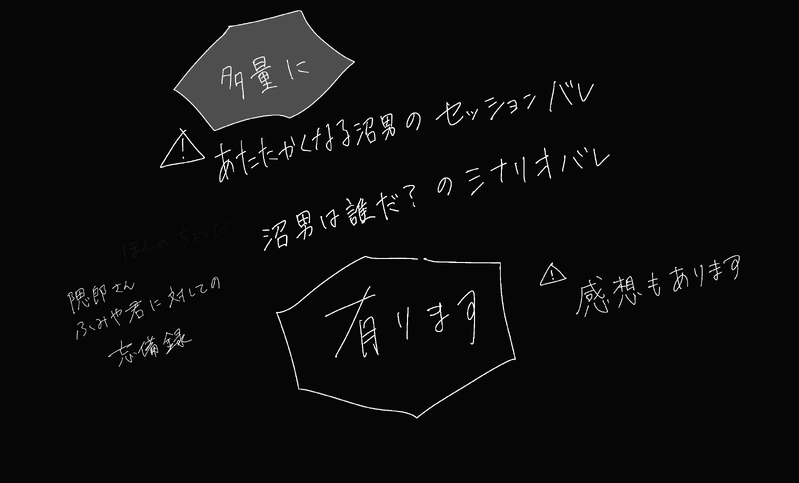 多量に
あたたかくなる沼男のセッションバレ
沼男は誰だ?のシナリオバレ
ほんのちょっぴ
隠郎さん
ふみや君に対しての
忘備録
有ります
感想もあります